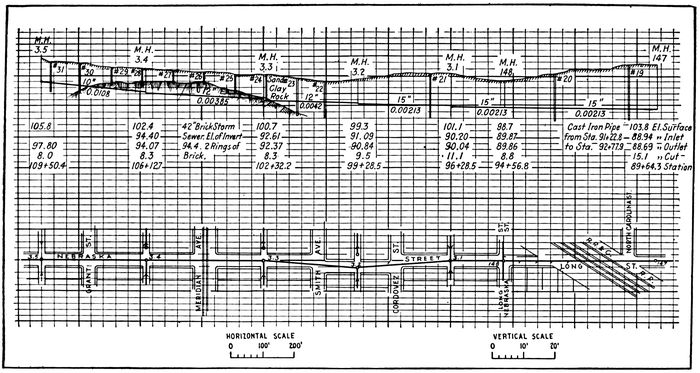 M.H.
3.5
M.H.
3.4
M.H.
3.3
M.H.
3.2
M.H.
3.1
M.H.
148
M.H.
147
#31
#30
#29
#28
#27
#26
#25
#24
#23
#22
#21
#20
#19
Sand
Clay
Rock
10"
0.0108
12"
0.00385
12"
0.0042
15"
0.00213
15"
0.00213
15"
0.00213
105.8
97.80
8.0
109+50.4
102.4
94.40
94.07
8.3
106+127
42" Brick Storm
Sewer. El. of Invert
94.4. 2 Rings of
Brick.
100.7
92.61
92.37
8.3
102+32.2
99.3
91.09
90.84
9.5
99+28.5
101.1
90.20
90.04
11.1
96+28.5
98.7
89.87
89.86
8.8
94+56.8
Cast Iron Pipe
from Sta. 91+22.8
to Sta. 92+77.9
103.8 El. Surface
88.94 " Inlet
88.69 " Outlet
15.1 " Cut
89+64.3 Station
3.5
NEBRASKA
GRANT ST.
3.4
MERIDIAN AVE.
3.3
SMITH AVE.
CORDOVEZ ST.
STREET
3.1
LONG ST.
NEBRASKA ST.
LONG ST.
NORTH CAROLINA ST.
147
HORIZONTAL SCALE
0 100' 200'
VERTICAL SCALE
0 10' 20'